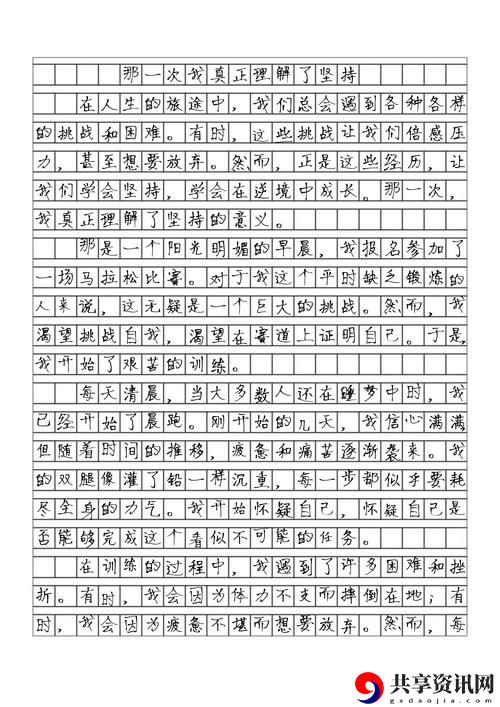 那一次我真正理解了坚持
在人生的旅途中，我们总会遇到各种各样
的挑战和困难。有时，这些挑战让我们倍感压
力，甚至想要放弃。然而，正是这些经历，让
我们学会坚持，学会在逆境中成长。那一次，
我真正理解了坚持的意义。
那是一个阳光明媚的早晨，我报名参加了
一场马拉松比赛。对于我这个平时缺乏锻炼的
人来说，这无疑是一个巨大的挑战。然而，我
渴望挑战自我，渴望在赛道上证明自己。于是，
我开始了艰苦的训练。
每天清晨，当大多数人还在睡梦中时，我
已经开始了晨跑。刚开始的几天，我信心满满，
但随着时间的推移，疲惫和痛苦逐渐袭来。我
的双腿像灌了铅一样沉重，每一步都似乎要耗
尽全身的力气。我开始怀疑自己，怀疑自己是
否能够完成这个看似不可能的任务。
在训练的过程中，我遇到了许多困难和挫
折。有时，我会因为体力不支而摔倒在地；有
时，我会因为疲惫不堪而想要放弃。然而，每
共享资讯网
gxdaojia.com